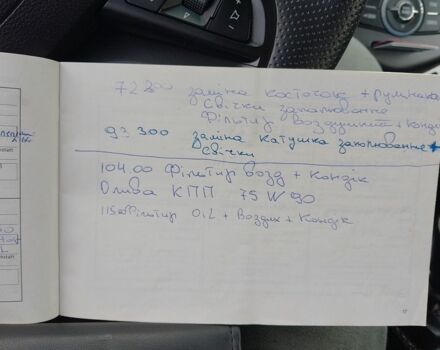 72 800 заміна костоток + румнака
Свічки запалювання
Фільтир воздушний + Конд
93 300 заміна Катушка запалювання +
Свічки
104.00 Фільтир возд + Кондік
Олива КПП 75 W 90
Фільтир OіL + Воздих + Кондік